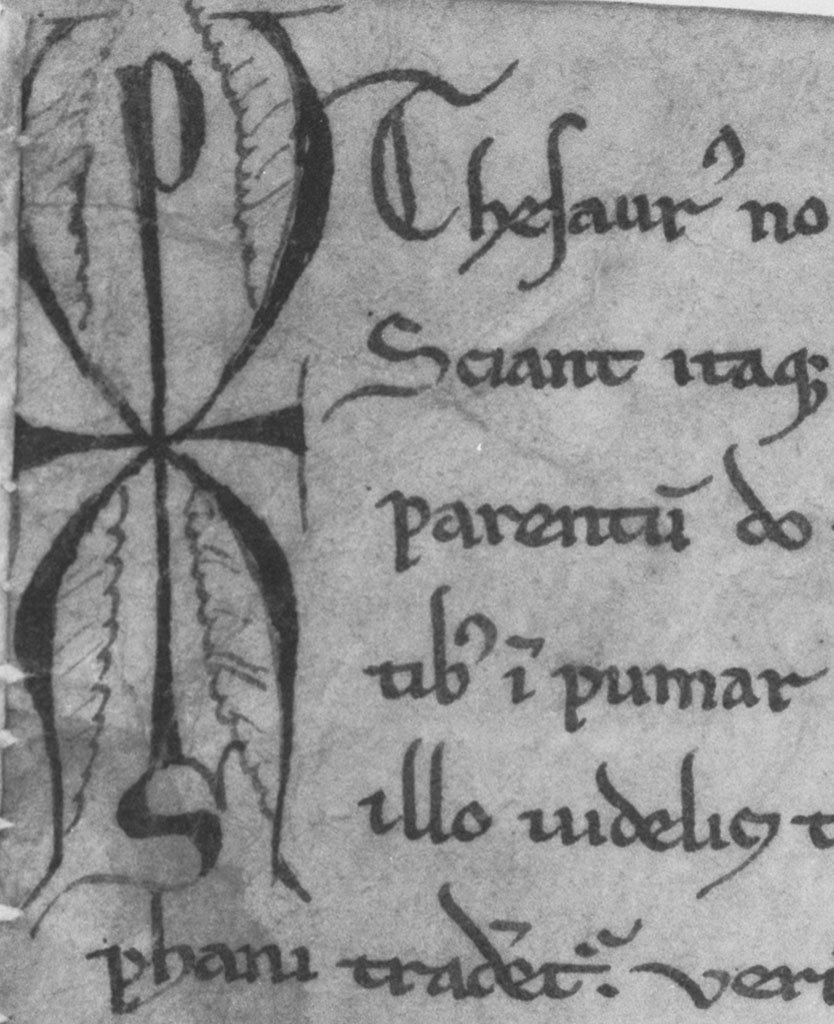 XPS
Thesaurꝰ no
Sciant itaq;
parentū do
tibꝰ ī pumar
illo uidelicꝫ t
phani tradēt᷑. veri